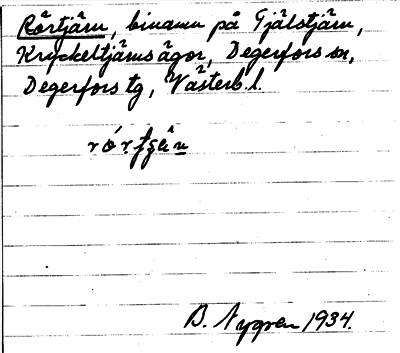 Rörtjärn, binamn på Gjälstjärn,
Kryckeltjärns ägor, Degerfors sn,
Degerfors tg, Västerb. l.
B. Nygren 1934.